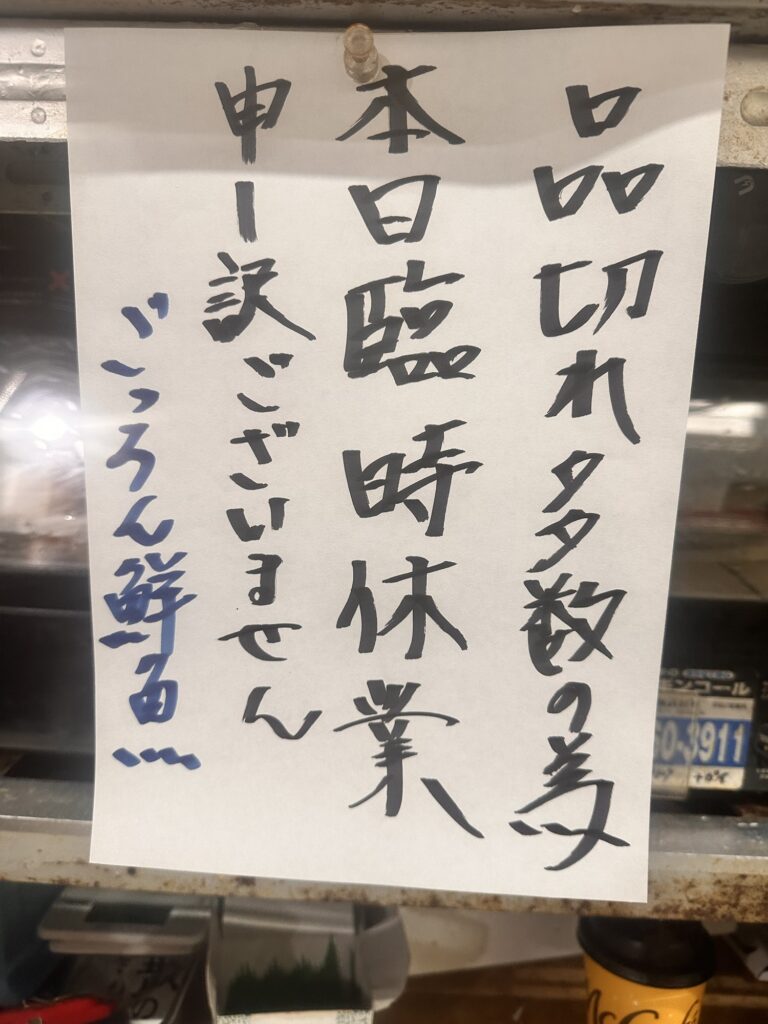 品切れ多数の為
本日臨時休業
申し訳ございません
ごっろん鮮魚
ンコール
60-3911
McCafé